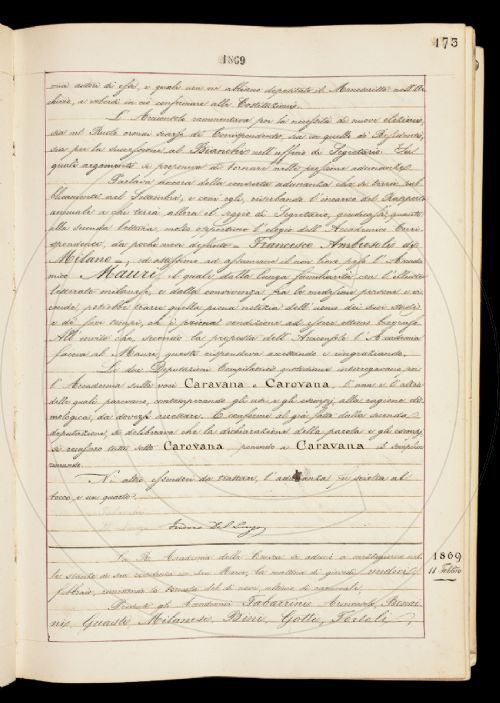 175
1869
mia autori di essi, i quali non ne abbiano depositato il Manoscritto nell'Ar
chivio, a volersi in ciò conformare alle Costituzioni.
L'Arciconsolo rammentava poi la necessità di nuove elezioni,
sia al Ruolo oramai scarso dei Corrispondenti, sia in quello di Residenti,
sia per la successione al Bianchi nell'uffizio di Segretario. Sul
quale argomento si proponeva di tornare nelle prossime adunanze.
Parlava ancora della consueta adunanza che si terrà pub
blicamente nel Settembre, e com'egli, riserbando l'incarico del Rapporto
annuale a chi terrà allora il seggio di Segretario, giudicasse, quanto
alla seconda lettura, molto opportuno l'elogio dell'Accademico Corri
spondente, da pochi mesi defunto Francesco Ambrosoli di
Milano; ed attissimo ad assumerne il non lieve peso l'Accade
mico Mauri, il quale dalla lunga familiarità con l'illustre
letterato milanese, e dalla convivenza fra le medesime persone e vi
cende potrebbe trarre quella piena notizia dell'uomo dei suoi studj
e de' suoi tempi, ch'è prima condizione ad esser ottimo biografo.
All'invito che, secondo la proposta dell'Arciconsolo l'Accademia
faceva al Mauri, questi rispondeva accettando e ringraziando.
Le due Deputazioni Compilatrici quotidiane interrogavano poi
l'Accademia sulle voci Caravana e Carovana, l'una e l'altra
delle quali parevano, contemperando gli usi e gli esempj alla ragione eti
mologica, da doversi accettare. E conforme al già fatto dalla seconda
deputazione, si deliberava che la dichiarazione della parola e gli esempj
si recassero tutti sotto Carovana, ponendo a Caravana il semplice
rimando.
Nè altro essendovi da trattare, l'adunanza fu sciolta al
tocco e un quarto.
Isidoro Del Lungo
1869
11 Febbraio
La R. Accademia della Crusca si adunò a mezzogiorno nel
le stanze di sua residenza in San Marco, la mattina di giovedì undici
febbraio, rimandata la tornata del dì nove, ultimo di carnevale.
Presenti gli Accademici Tabarrini Arciconsolo, Bencini
ni, Guasti, Milanesi, Bini, Gotti, Tortoli,